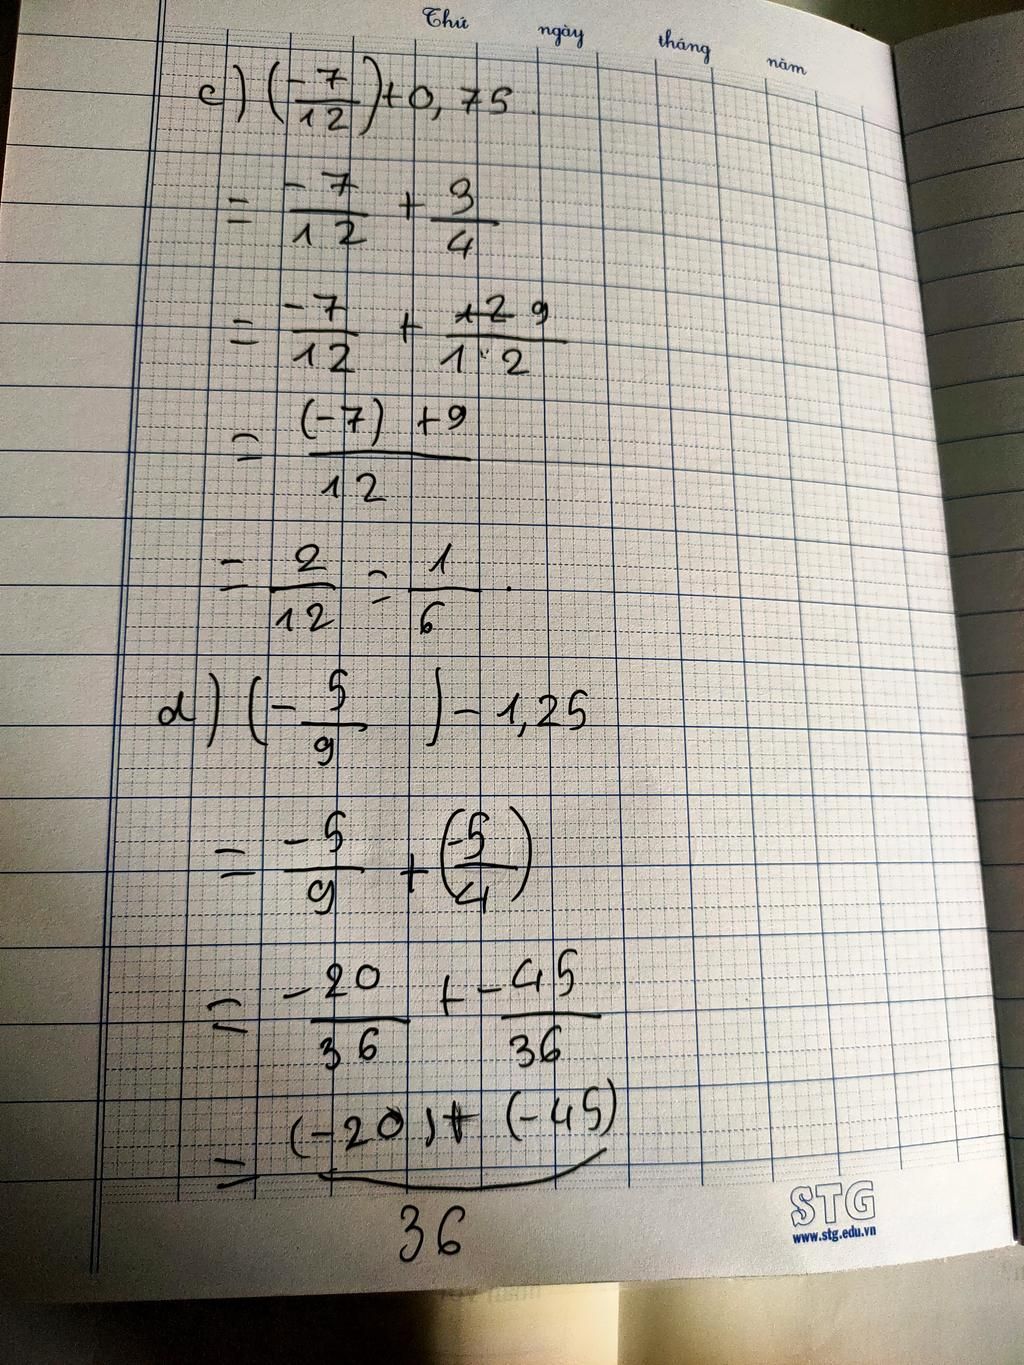 Thứ ngày tháng năm
c) (-7/12) + 0,75.
= -7/12 + 3/4
= -7/12 + 9/12
= (-7) + 9/12
= 2/12 = 1/6.
d) (-5/9) - 1,25
= -5/9 + (-5/4)
= -20/36 + -45/36
= (-20) + (-45)/36
STG
www.stg.edu.vn